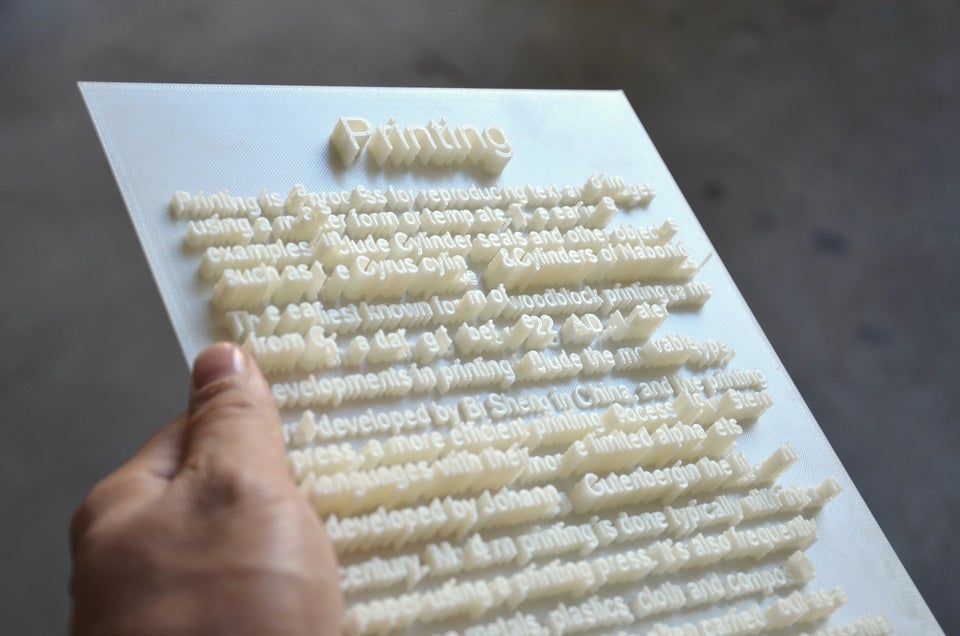 Printing
Printing is a process for reproducing text and images
using a master form or template. The earliest
examples include Cylinder seals and other objects
such as the Cyrus Cylinder & Cylinders of Nabonidus
The earliest known form of woodblock printing
from dating before 22 A.D. Later
developments in printing include the movable type
developed by Bi Sheng in China and the printing
press, a more efficient printing process for western
languages with their more limited alphabets
developed by Johannes Gutenberg in the
century. Modern printing is done typically with ink
on paper using a printing press. It's also frequently
metals, plastics, cloth and
carried out as a